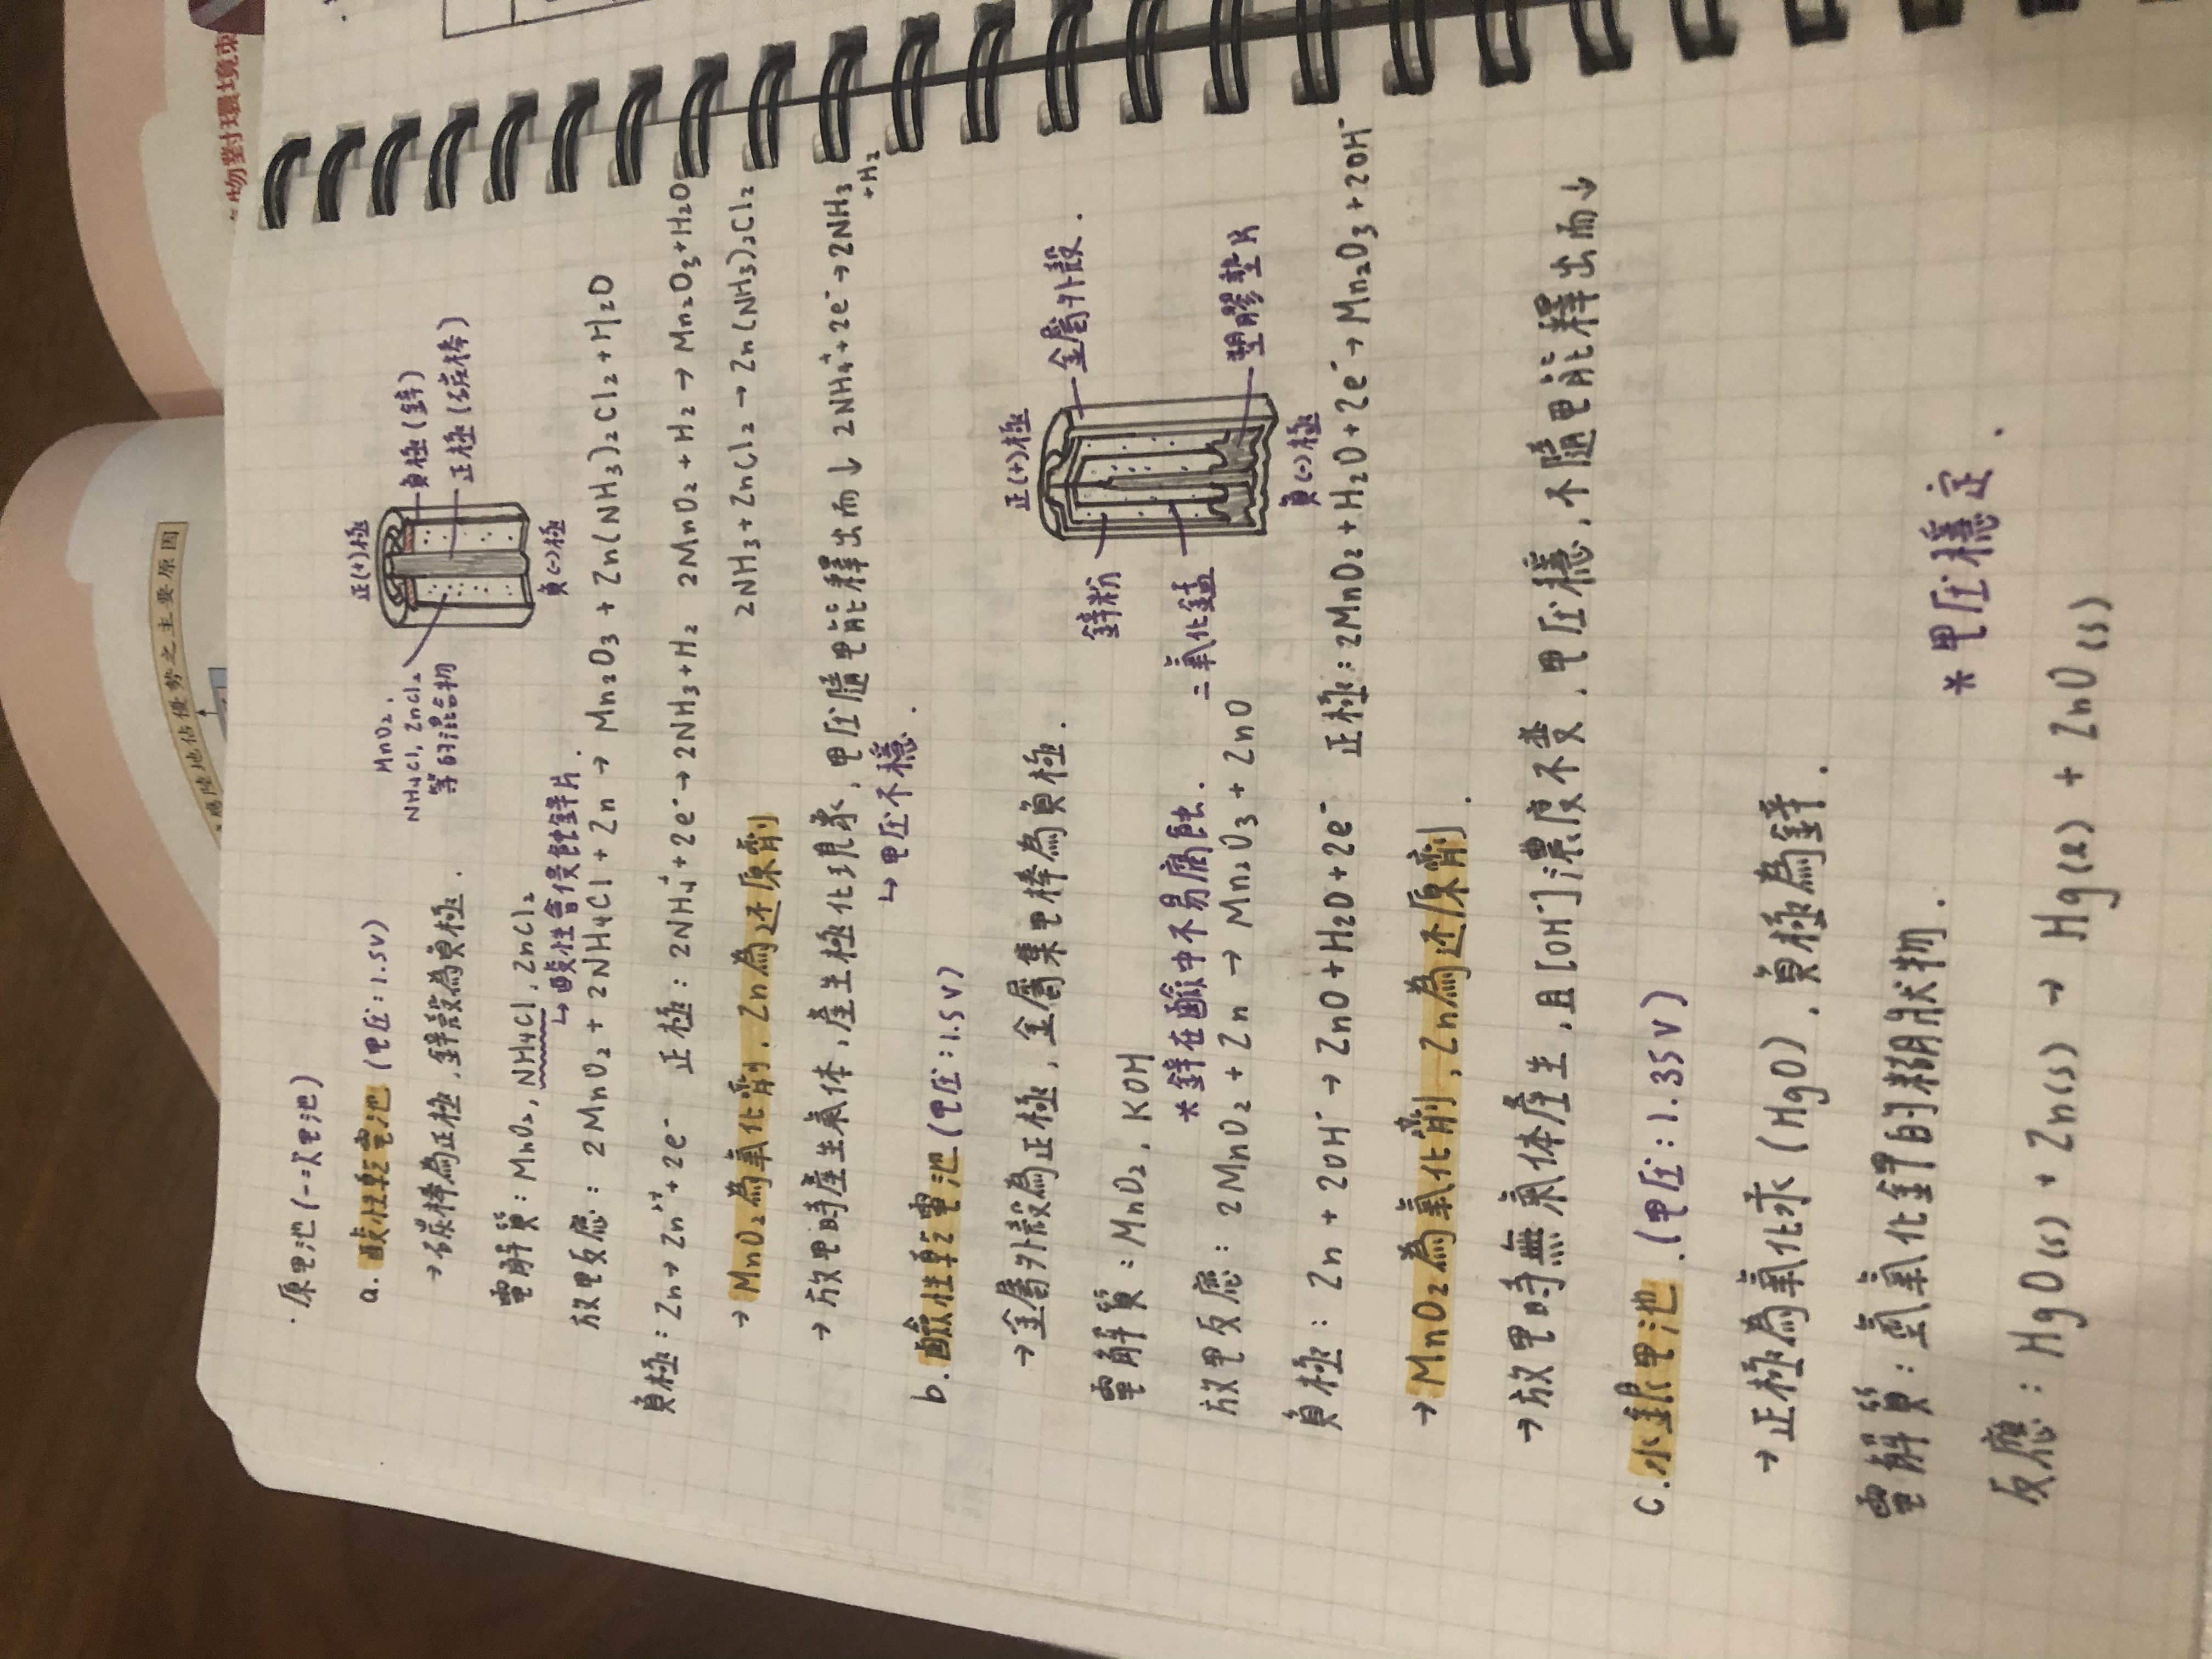 ·原电池(一次电池)
a. 酸性乾電池 (电压:1.5V)
→碳棒為正極,鋅殼為負極.
電解質:MnO₂, NH₄Cl, ZnCl₂
↳酸性會侵蝕鋅片.
放电反應: 2MnO₂ + 2NH₄Cl + Zn → Mn₂O₃ + Zn(NH₃)₂Cl₂ + H₂O
負極:Zn→Zn²⁺+2e⁻ 正極:2NH₄⁺+2e⁻→2NH₃+H₂ 2MnO₂+H₂→Mn₂O₃+H₂O
2NH₃+ZnCl₂→Zn(NH₃)₂Cl₂
→ MnO₂為氧化劑,Zn為还原劑
→ 放电時產生氣体,產生極化現象,电压隨电能釋出而↓ 2NH₄⁺+2e⁻→2NH₃
+H₂
↳电压不穩.
正(+)極
負極(鋅)
正極(碳棒)
負(-)極
MnO₂,
NH₄Cl, ZnCl₂
等的混合物
b. 鹼性乾電池 (电压:1.5V)
→金屬外殼為正極,金屬集电棒為負極.
電解質:MnO₂, KOH
*鋅在鹼中不易腐蝕.
放电反應: 2MnO₂ + Zn → Mn₂O₃ + ZnO
負極: Zn + 2OH⁻ → ZnO+H₂O+2e⁻ 正極:2MnO₂+H₂O+2e⁻→Mn₂O₃+2OH⁻
→ MnO₂為氧化劑,Zn為还原劑.
→放电時無氣体產生,且[OH⁻]濃度不变,电压穩,不隨电能釋出而↓
正(+)極
金屬外殼.
鋅粉
二氧化錳
塑膠墊片
負(-)極
c. 水銀电池.(电压:1.35V)
→正極為氧化汞(HgO),負極為鋅.
電解質:氫氧化鉀的糊狀物.
*电压穩定.
反應: HgO(s) + Zn(s) → Hg(ℓ) + ZnO(s)
物對環境束
陸地佔優勢之主要原因